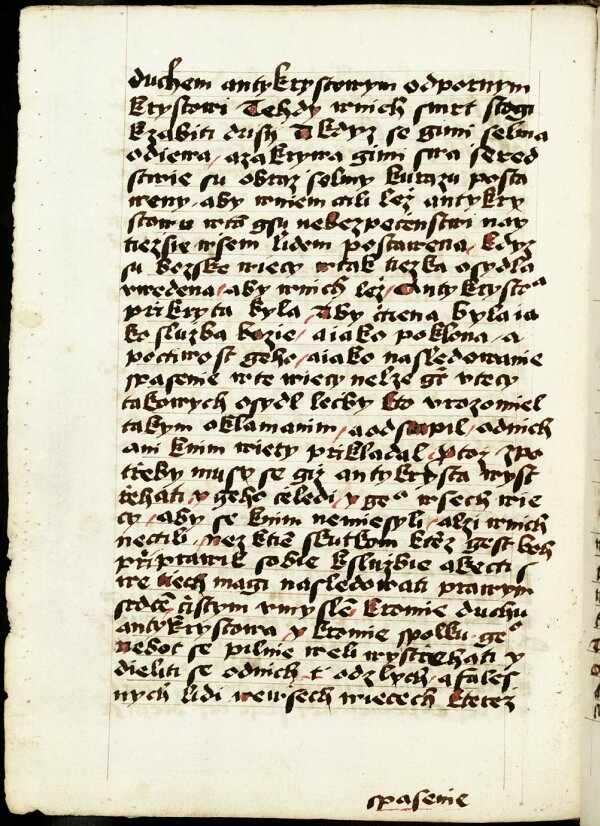 duchem antykrystowym odpornym
krystowi Tehdy wnich smrt stogi
kzabiti dusy A kdyz se gimi selma
odiewa, azakrywa gimi swa sered
stwie su obraz selmy kurazu posta
weny, aby wniem ctili lez antykry
stowu wto gsu nebezpecenstwi nay
tiezsie wsem lidem postawena, kdyz
su bozske wiecy wtak tiezka osydla
vwedena, aby wnich lez Antykrysto^a
prikryta byla, Aby ctena byla ia
ko sluzba bozie, aiako poklona, a
poctiwost geho, aiako nasledowanie
spasenie wte wiecy nelze gt vtecy
takowych osydl lecky kto vrozomiel
takym oklamanim, aodstupil, odnich
ani knim wiery prikladal, Ptoz, zpo
třeby musy se giz antykrysta wyst
řehati, y geho celedi, y ge^o wsech wie
cy, aby se knim nemiesyli, alzi wnich
nectili, nez ktie skutkom kterz gest boh
připrawil sobie ksluzbie akecti s
we tiech magi nasledowati prawym
srdce, cistym vmysle, kromie duchu
antykrystowa, y kromie spolku ge^o
Nebot se pilnie weli wystrehati y
dieliti se odnich t odzlych, afales
nych lidi wewsech wiecech kterez
spasenie